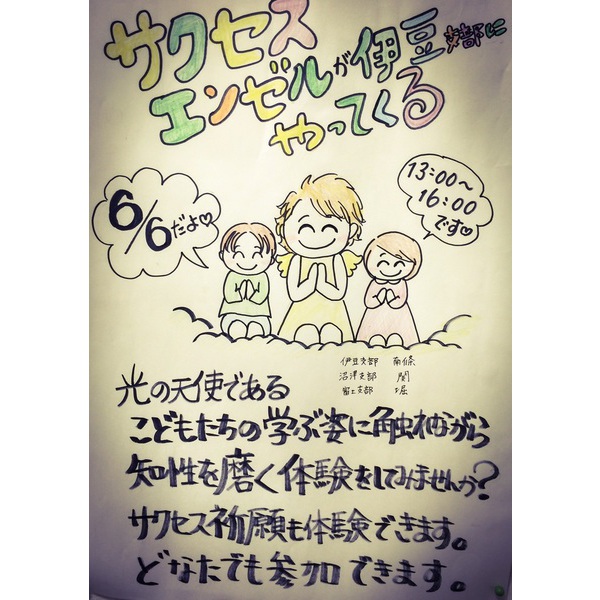 サクセス
エンゼルが伊豆支部に
やってくる
6/6だよ♡
13:00〜
16:00
です♡
伊豆支部 南條
沼津支部 関
富士支部 堀
光の天使である
こどもたちの学ぶ姿に触れながら
知性を磨く体験をしてみませんか?
サクセス祈願も体験できます。
どなたでも参加できます。